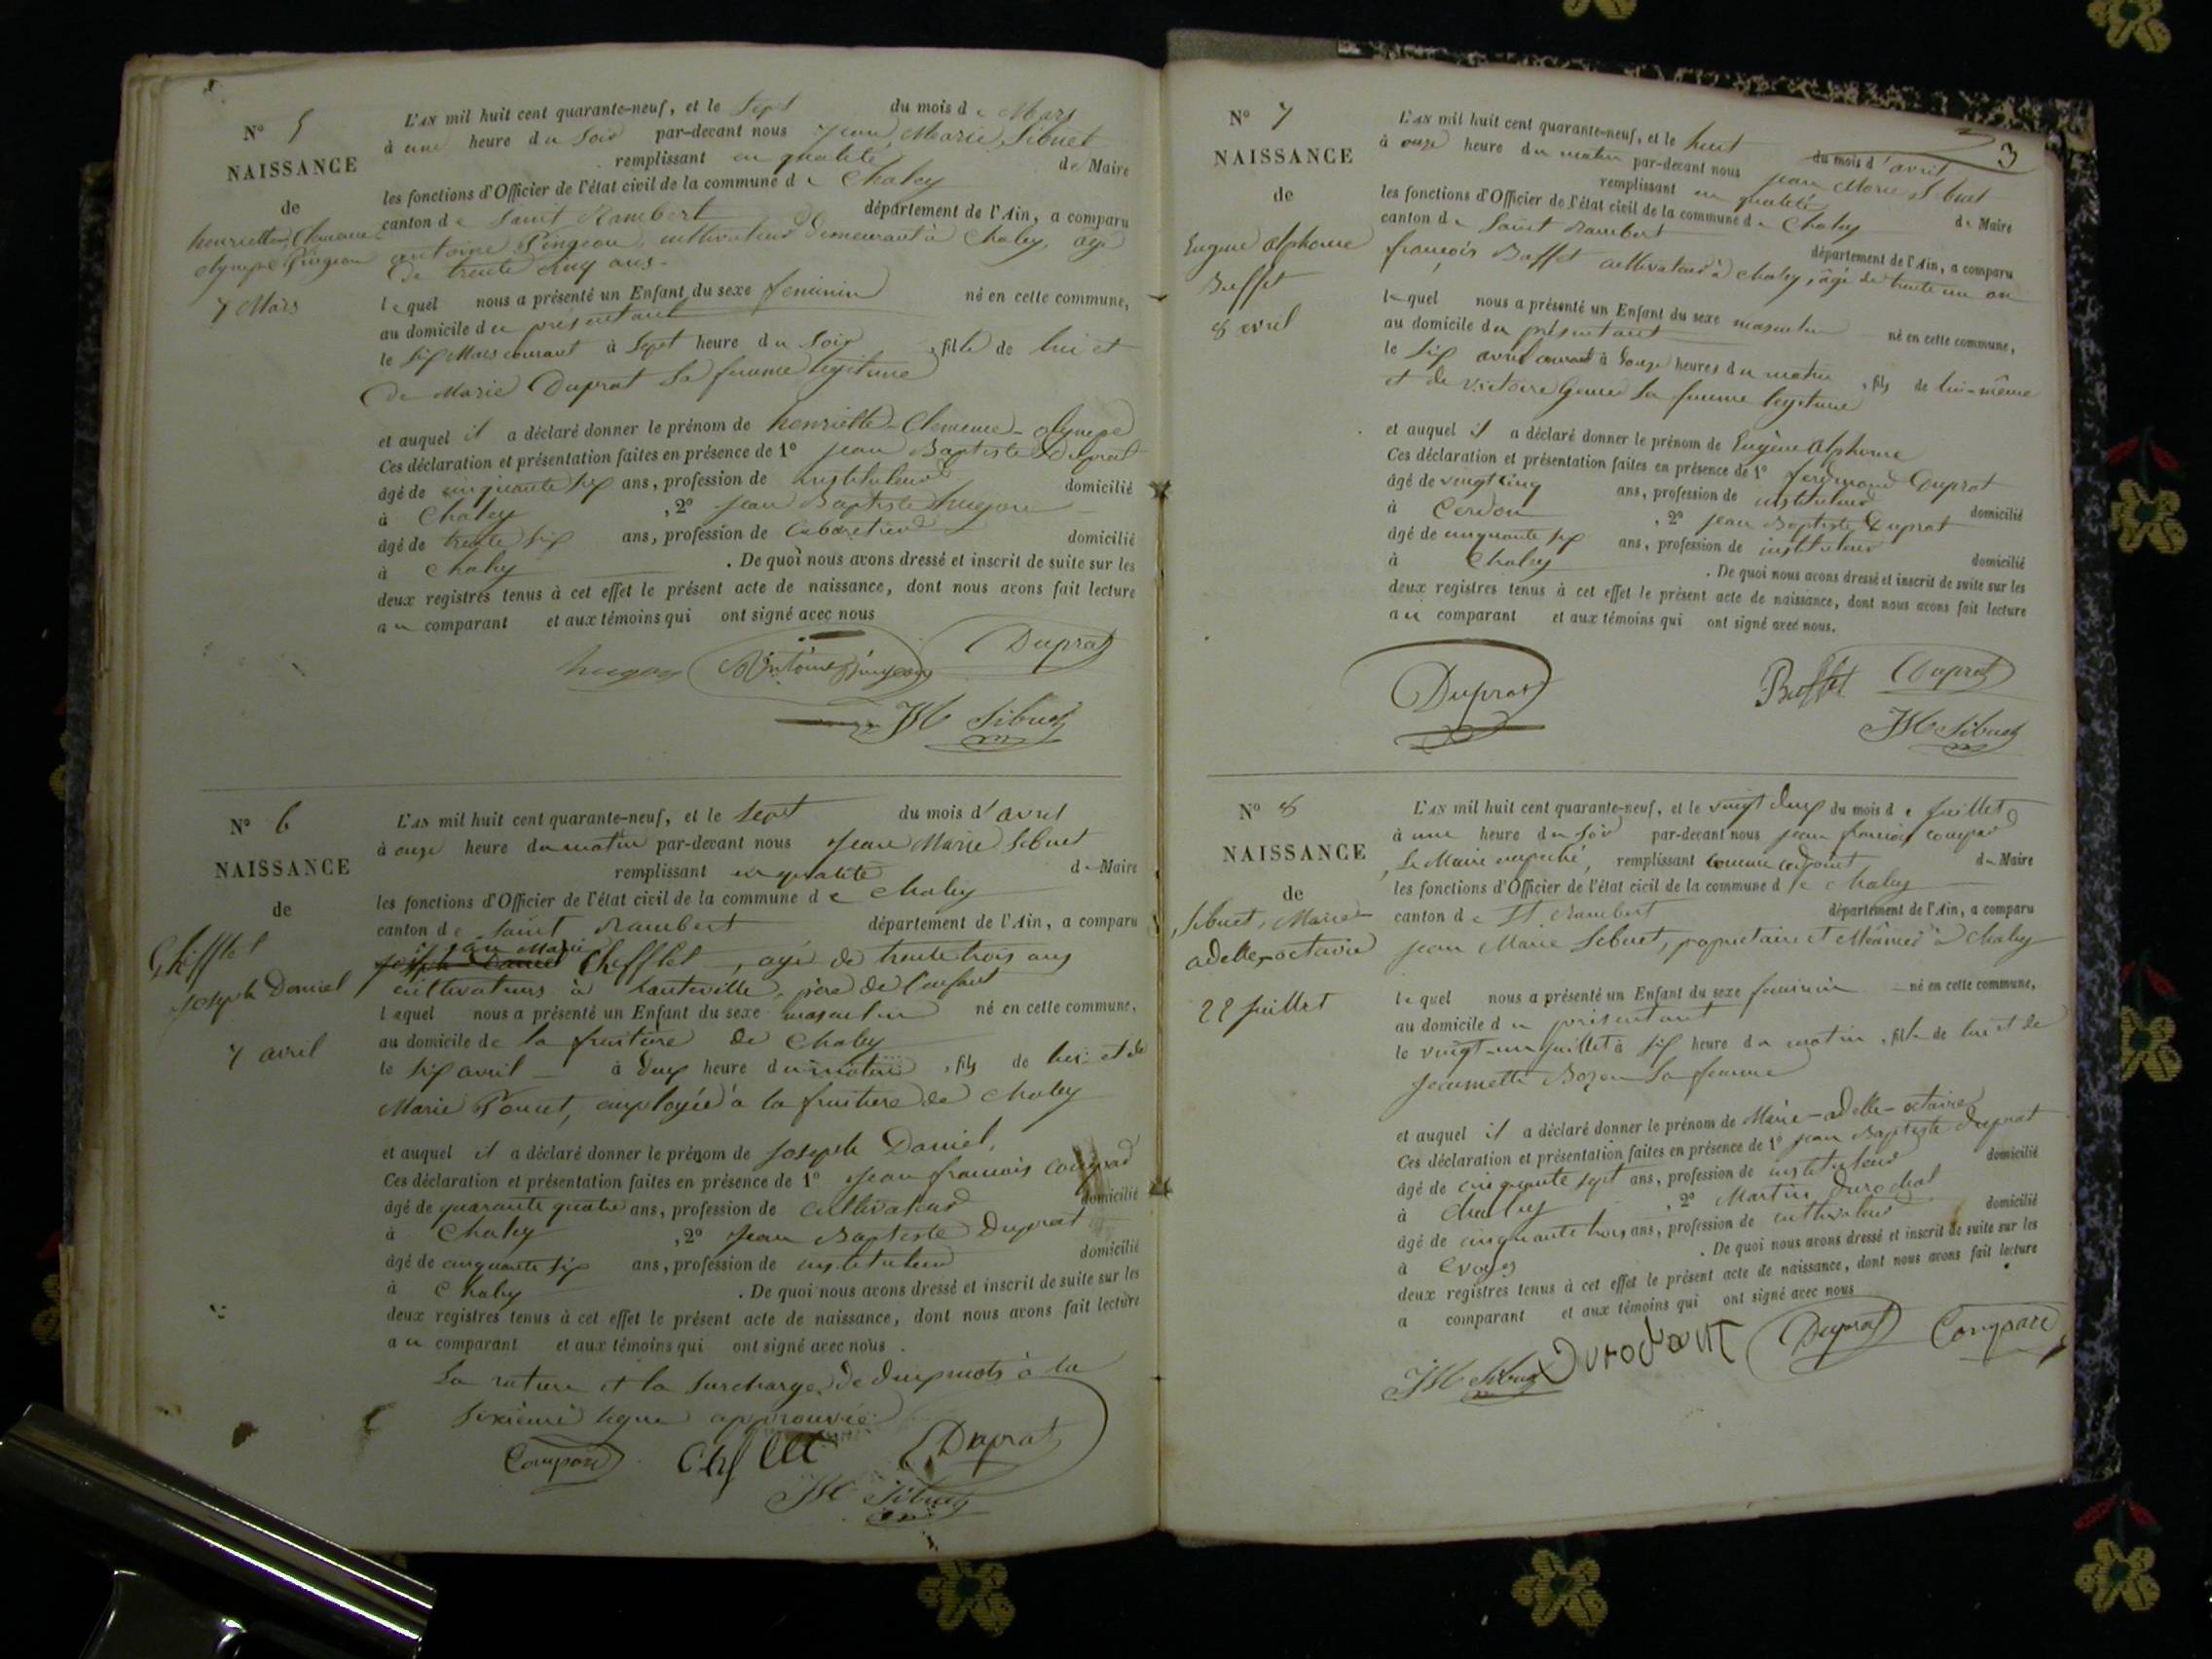 N° 5
NAISSANCE
de
henriette Clemence
olympe Pingeon
7 Mars
L'AN mil huit cent quarante-neuf, et le Sept du mois de Mars
à une heure du Soir par-devant nous Jean Marie Sibuet
remplissant en qualité de Maire
les fonctions d'Officier de l'état civil de la commune de Chaley
canton de Saint Rambert département de l'Ain, a comparu
antoine Pingeon, cultivateur demeurant à Chaley, agé
de trente cinq ans.
lequel nous a présenté un Enfant du sexe feminin né en cette commune,
au domicile du présentant
le Six Mars courant à Sept heure du Soir, fille de lui et
de Marie Duprat Sa femme légitime
et auquel il a déclaré donner le prénom de henriette-Clemence-olympe
Ces déclaration et présentation faites en présence de 1° jean Baptiste Duprat
âgé de cinquante six ans, profession de instituteur domicilié
à Chaley, 2° jean Baptiste hugon
âgé de trente six ans, profession de Cabaretier domicilié
à Chaley. De quoi nous avons dressé et inscrit de suite sur les
deux registres tenus à cet effet le présent acte de naissance, dont nous avons fait lecture
au comparant et aux témoins qui ont signé avec nous
hugon Antoine Pingeon Duprat
JM Sibuet
N° 6
NAISSANCE
de
Chifflet
joseph Daniel
7 avril
L'AN mil huit cent quarante-neuf, et le Sept du mois d'avril
à onze heure du matin par-devant nous Jean Marie Sibuet
remplissant en qualité de Maire
les fonctions d'Officier de l'état civil de la commune de Chaley
canton de Saint Rambert département de l'Ain, a comparu
jean Marie
joseph Daniel Chifflet, agé de trente trois ans
cultivateurs à hauteville, père de l'enfant
lequel nous a présenté un Enfant du sexe masculin né en cette commune,
au domicile de la fruitière de Chaley
le Six avril à Deux heure du matin, fils de lui et de
Marie Poncet, employée à la fruitière de Chaley
et auquel il a déclaré donner le prénom de joseph Daniel.
Ces déclaration et présentation faites en présence de 1° jean françois Compard
âgé de quarante quatre ans, profession de cultivateur domicilié
à Chaley, 2° Jean Baptiste Duprat
âgé de cinquante six ans, profession de instituteur domicilié
à Chaley. De quoi nous avons dressé et inscrit de suite sur les
deux registres tenus à cet effet le présent acte de naissance, dont nous avons fait lecture
au comparant et aux témoins qui ont signé avec nous.
La rature et la Surcharge de deux mots à la
Sixième ligne approuvée
Compard Duprat
JM Sibuet
3
N° 7
NAISSANCE
de
Eugène alphonse
Buffet
8 avril
L'AN mil huit cent quarante-neuf, et le huit du mois d'avril
à onze heure du matin par-devant nous jean Marie Sibuet
remplissant en qualité de Maire
les fonctions d'Officier de l'état civil de la commune de Chaley
canton de Saint Rambert département de l'Ain, a comparu
françois Buffet cultivateur à Chaley, âgé de trente un an
lequel nous a présenté un Enfant du sexe masculin né en cette commune,
au domicile du présentant
le Six avril courant à onze heures du matin, fils de lui-même
et de victoire Sa femme legitime
et auquel il a déclaré donner le prénom de Eugène alphonse
Ces déclaration et présentation faites en présence de 1° ferdinand Duprat
âgé de vingt cinq ans, profession de instituteur domicilié
à Cerdon, 2° jean Baptiste Duprat
âgé de cinquante six ans, profession de instituteur domicilié
à Chaley. De quoi nous avons dressé et inscrit de suite sur les
deux registres tenus à cet effet le présent acte de naissance, dont nous avons fait lecture
au comparant et aux témoins qui ont signé avec nous.
Duprat Buffet Duprat
JM Sibuet
N° 8
NAISSANCE
de
Sibuet, Marie-
adelle-octavie
22 juillet
L'AN mil huit cent quarante-neuf, et le vingt deux du mois de juillet
à une heure du Soir par-devant nous jean françois compard
, Le Maire empeché, remplissant comme adjoint du Maire
les fonctions d'Officier de l'état civil de la commune de Chaley
canton de St Rambert département de l'Ain, a comparu
jean Marie Sibuet, propriétaire et Meûnier à Chaley
lequel nous a présenté un Enfant du sexe feminin né en cette commune,
au domicile du présentant
le vingt-un juillet à Six heure du matin, fille de lui et de
jeannette Bozon Sa femme
et auquel il a déclaré donner le prénom de Marie-adelle-octavie
Ces déclaration et présentation faites en présence de 1° jean Baptiste Duprat
âgé de cinquante sept ans, profession de instituteur domicilié
à Chaley, 2° Martin Durochat
âgé de cinquante trois ans, profession de cultivateur domicilié
à Evoges. De quoi nous avons dressé et inscrit de suite sur les
deux registres tenus à cet effet le présent acte de naissance, dont nous avons fait lecture
a comparant et aux témoins qui ont signé avec nous
JM Sibuet Durochat Duprat Compard